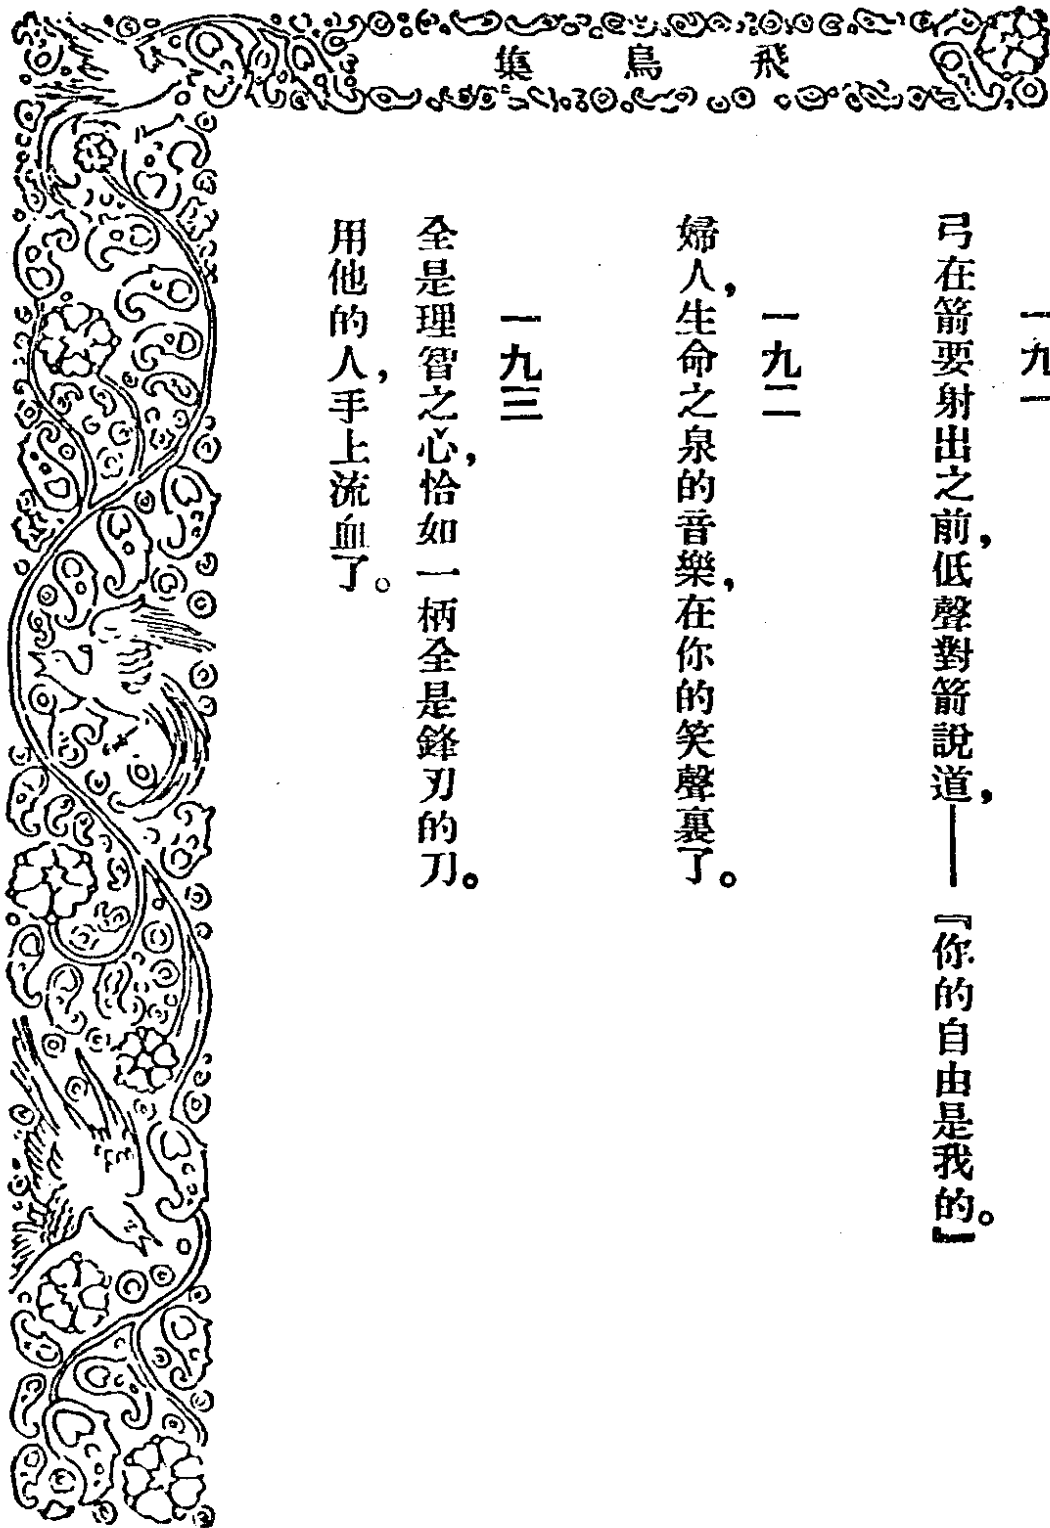 飛鳥集
一九一
弓在箭要射出之前，低聲對箭說道，——『你的自由是我的。』
一九二
婦人，生命之泉的音樂，在你的笑聲裏了。
一九三
全是理智之心，恰如一柄全是鋒刃的刀。
用他的人，手上流血了。